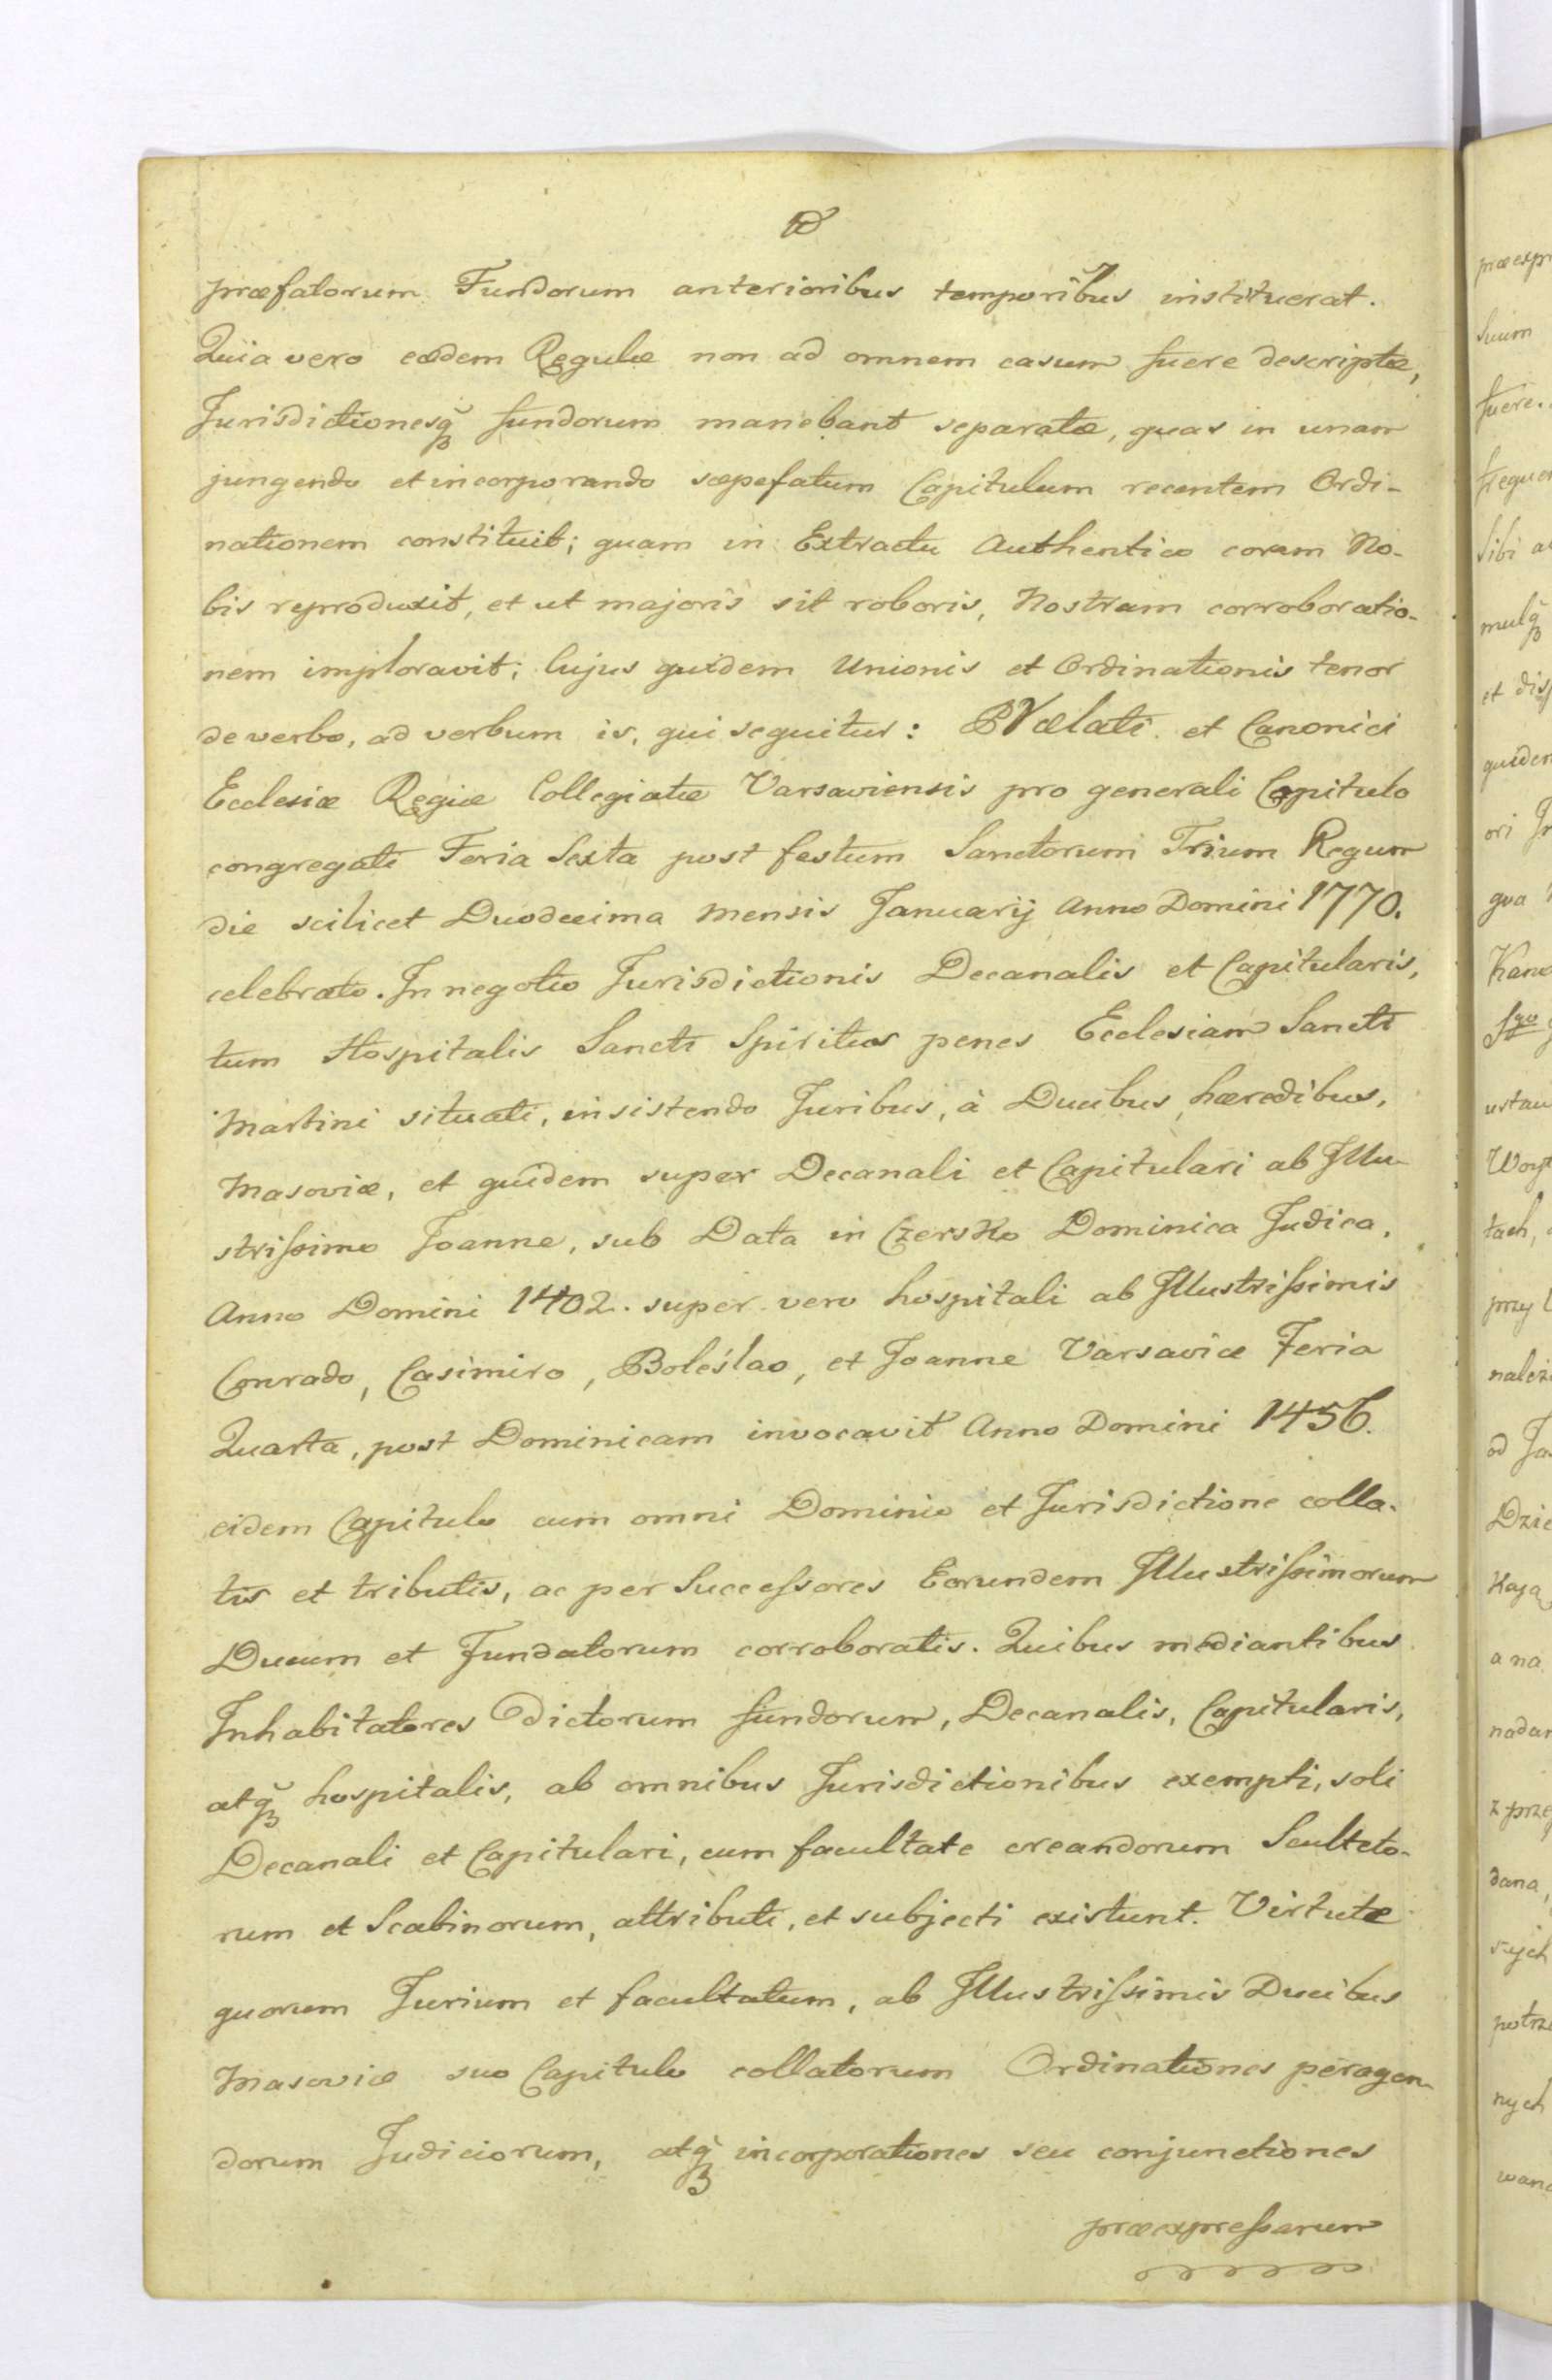 præfatorum Fundorum anterioribus temporibus instituerat.
Quia vero eædem Regulæ non ad omnem casum fuere descriptæ,
Jurisdictionesq̃ fundorum manebant separatæ, quas in unam
jungendo et incorporando sæpefatum Capitulum recentem Ordi-
nationem constituit; quam in Extractu Authentico coram No-
bis reproduxit, et ut majoris sit roboris, Nostram corroboratio-
nem imploravit; Cujus quidem Unionis et Ordinationis tenor
de verbo, ad verbum is, qui sequitur: PRælati et Canonici
Ecclesiæ Regiæ Collegiatæ Varsaviensis pro generali Capitulo
congregati Feria Sexta post festum Sanctorum Trium Regum
die scilicet Duodecima Mensis Januarij Anno Domini 1770.
celebrato. In negotio Jurisdictionis Decanalis et Capitularis,
tum Hospitalis Sancti Spiritus penes Ecclesiam Sancti
Martini situati, insistendo Juribus, à Ducibus hæredibus,
Masoviæ, et quidem super Decanali et Capitulari ab Illu-
strissimo Joanne, sub Data in Czersko Dominica Judica,
Anno Domini 1402. super vero hospitali ab Illustrissimis
Conrado, Casimiro, Boleślao, et Joanne Varsaviæ Feria
Quarta, post Dominicam invocavit Anno Domini 1456.
eidem Capitulo cum omni Dominio et Jurisdictione colla-
tis et tributis, ac per Successores Eorundem Illustrissimorum
Ducum et Fundatorum corroboratis. Quibus mediantibus
Inhabitatores Dictorum fundorum, Decanalis, Capitularis,
atq̃ hospitalis, ab omnibus Jurisdictionibus exempti, soli
Decanali et Capitulari, cum facultate creandorum Sculteto-
rum et Scabinorum, attributi, et subjecti existunt. Virtute
quorum Jurium et facultatum, ab Illustrissimis Ducibus
Masoviæ suo Capitulo collatorum Ordinationes peragen-
dorum Judiciorum, atq̃ incorporationes seu conjunctiones
præexpressarum